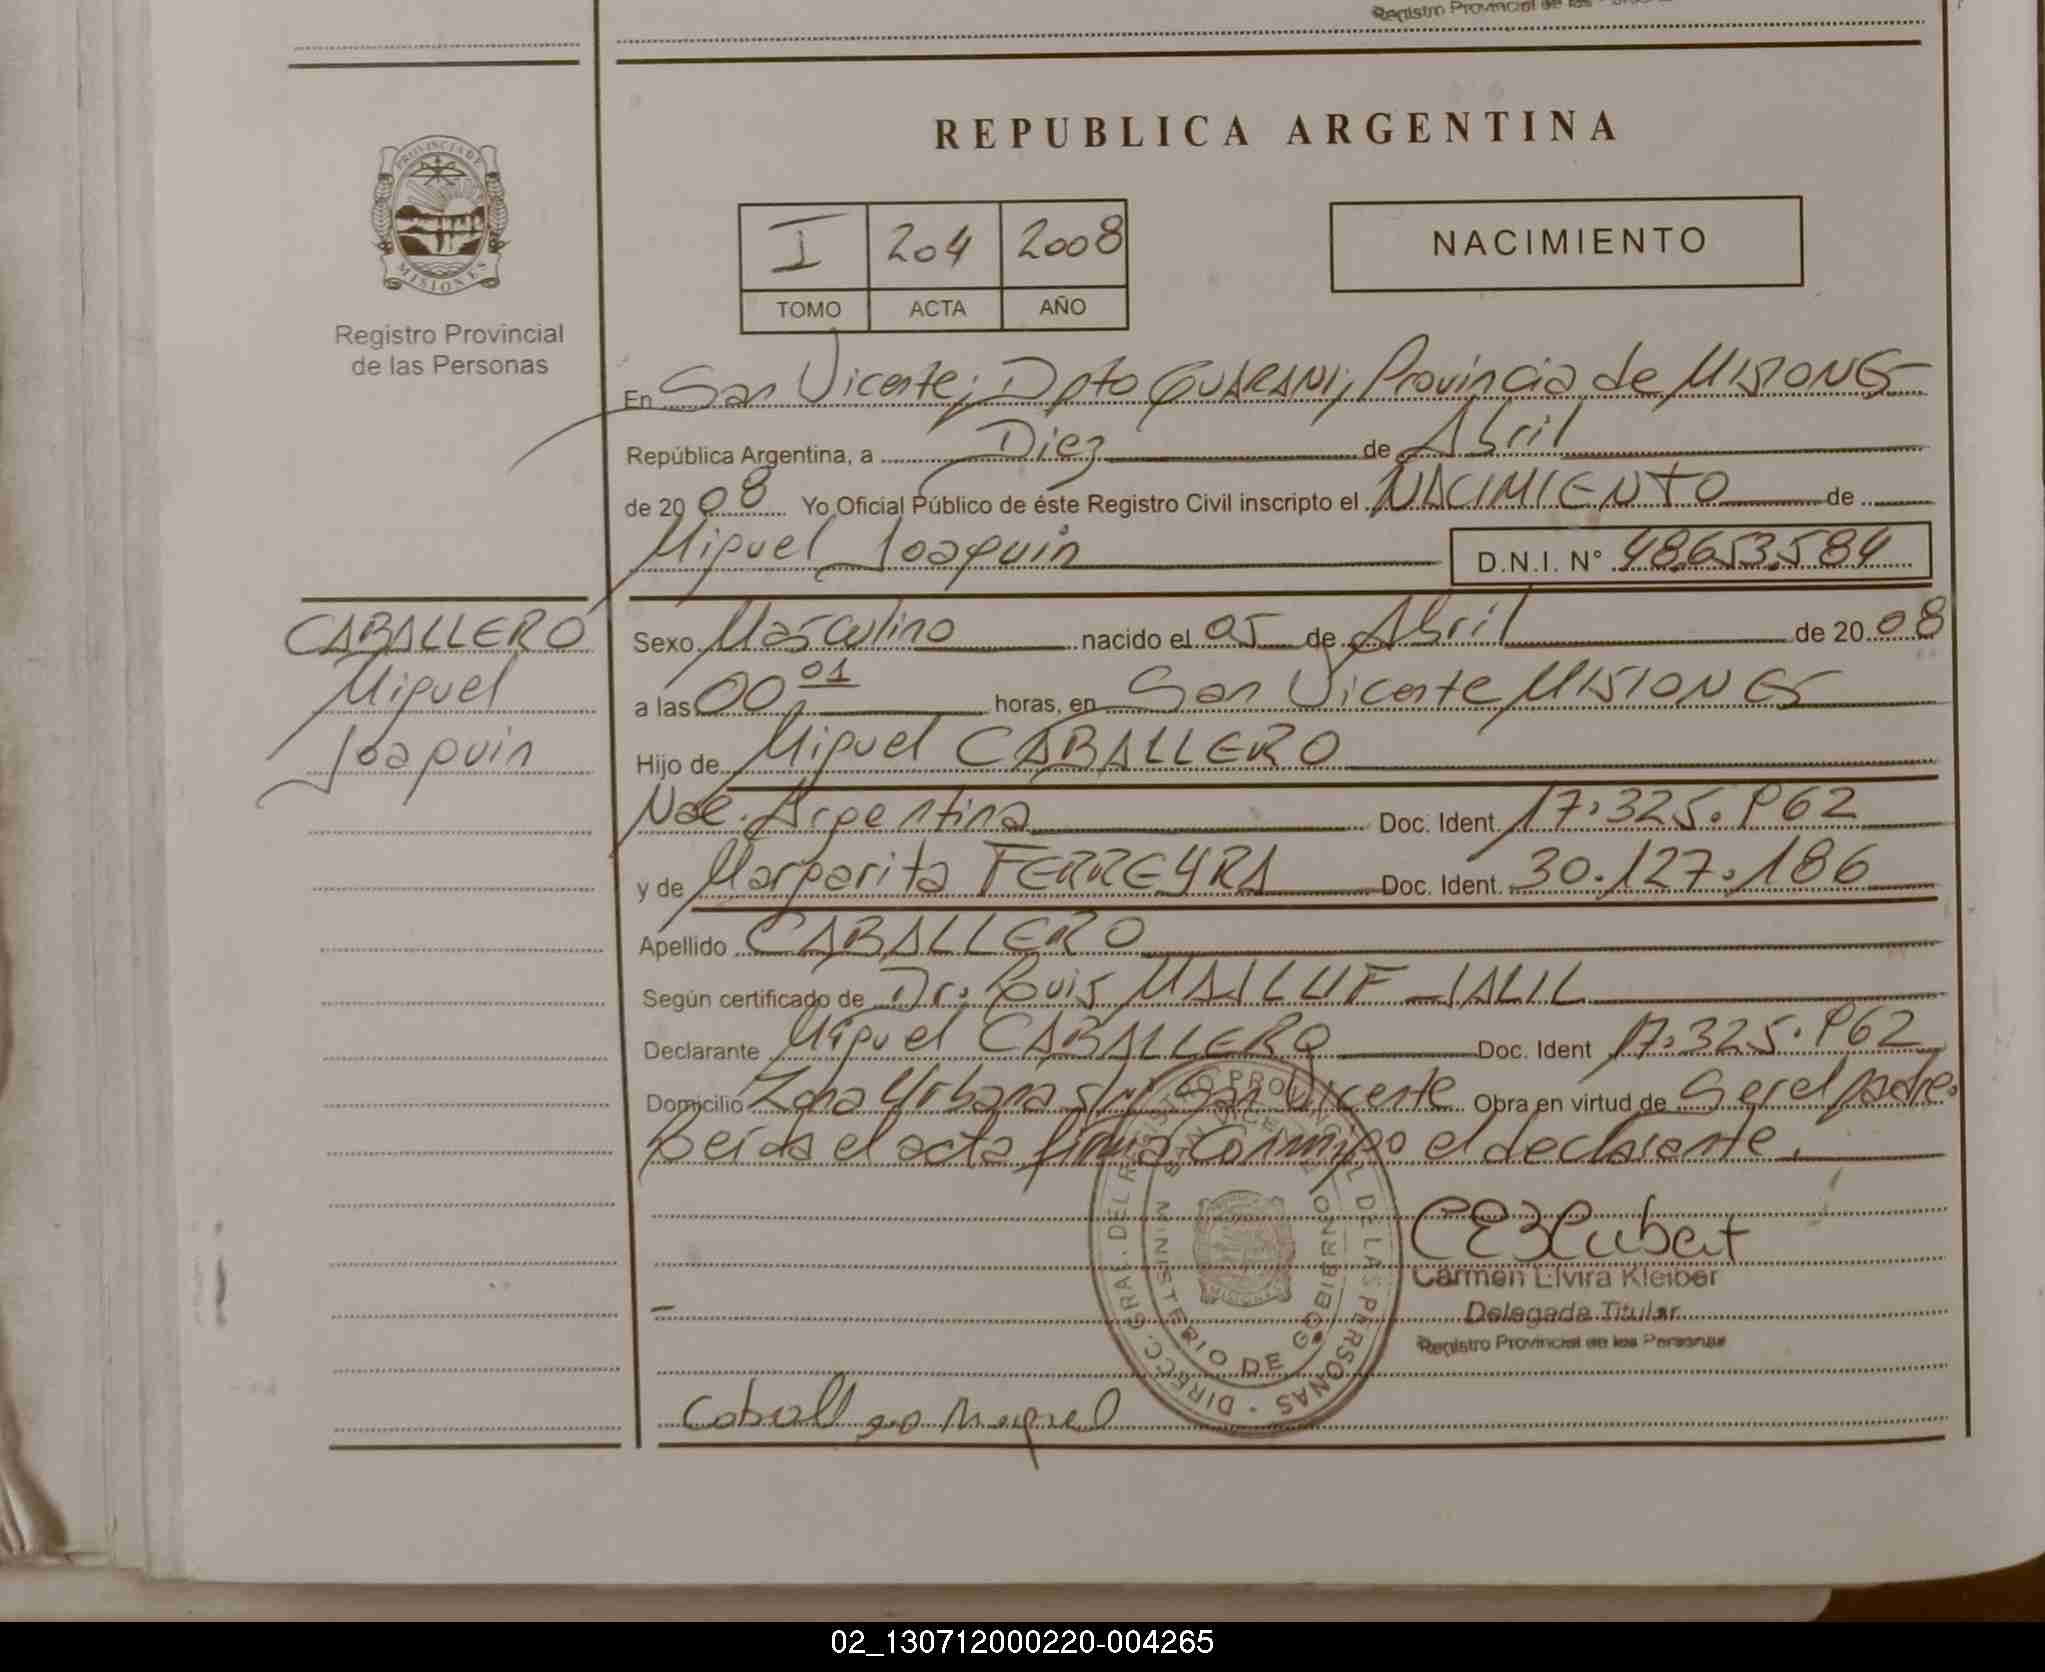 Registro Provincial de las
REPUBLICA ARGENTINA
PROVINCIA DE
MISIONES
Registro Provincial
de las Personas
I 204 2008
TOMO ACTA AÑO
NACIMIENTO
En San Vicente; Dpto GUARANI; Provincia de MISIONES
República Argentina, a Diez de Abril
de 2008 Yo Oficial Público de éste Registro Civil inscripto el NACIMIENTO de
Miguel Joaquin D.N.I. N° 48.653.584
CABALLERO
Miguel
Joaquin
Sexo Masculino nacido el 05 de Abril de 2008
a las 00 01 horas, en San Vicente MISIONES
Hijo de Miguel CABALLERO
Nac. Argentina Doc. Ident. 17.325.962
y de Margarita FERREYRA Doc. Ident. 30.127.186
Apellido CABALLERO
Según certificado de Dr. Louis MAALUF JALIL
Declarante Miguel CABALLERO Doc. Ident 17.325.962
Domicilio Zona Urbana s/n San Vicente Obra en virtud de Ser el padre.
Leida el acta firma conmigo el declarante.
DIRECC. GRAL. DEL REGISTRO PROVINCIAL DE LAS PERSONAS
MINISTERIO DE GOBIERNO
SAN VICENTE
MISIONES
Carmen Elvira Kleiber
Delegada Titular
Registro Provincial de las Personas
Caballero Miguel
02_130712000220-004265